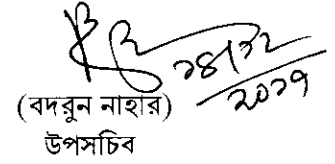 ১৪/১২
২০১৭
(বদরুন নাহার)
উপসচিব